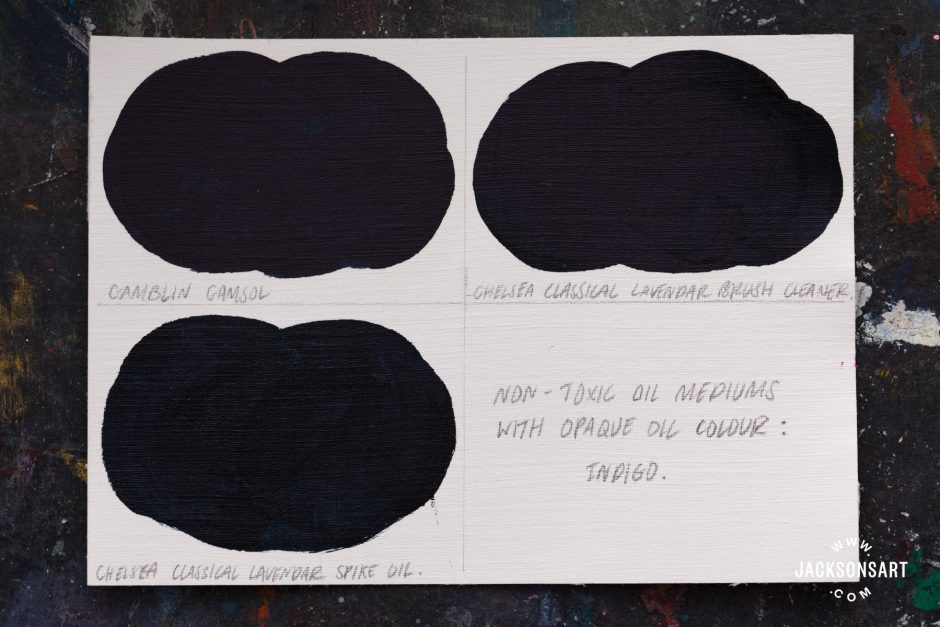 GAMBLIN GAMSOL
CHELSEA CLASSICAL LAVENDAR BRUSH CLEANER.
NON-TOXIC OIL MEDIUMS
WITH OPAQUE OIL COLOUR:
INDIGO.
CHELSEA CLASSICAL LAVENDAR SPIKE OIL.
WWW.
JACKSONSART
.COM